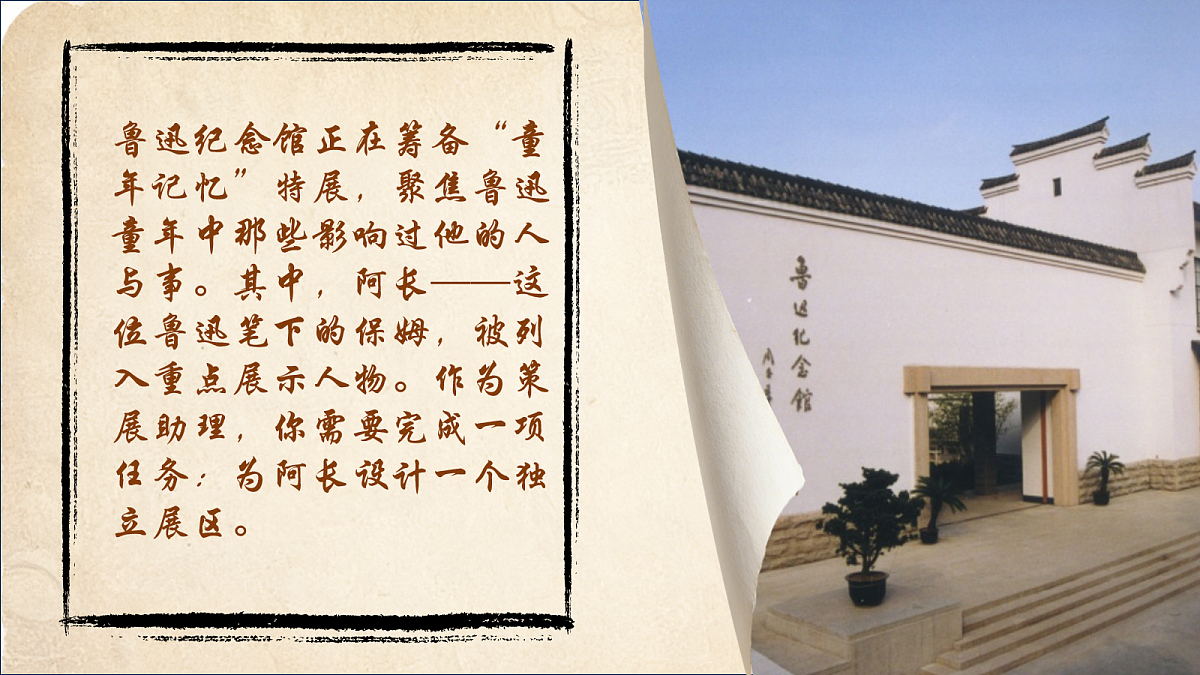 鲁迅纪念馆正在筹备“童
年记忆”特展，聚焦鲁迅
童年中那些影响过他的人
与事。其中，阿长——这
位鲁迅笔下的保姆，被列
入重点展示人物。作为策
展助理，你需要完成一项
任务：为阿长设计一个独
立展区。
鲁迅纪念馆